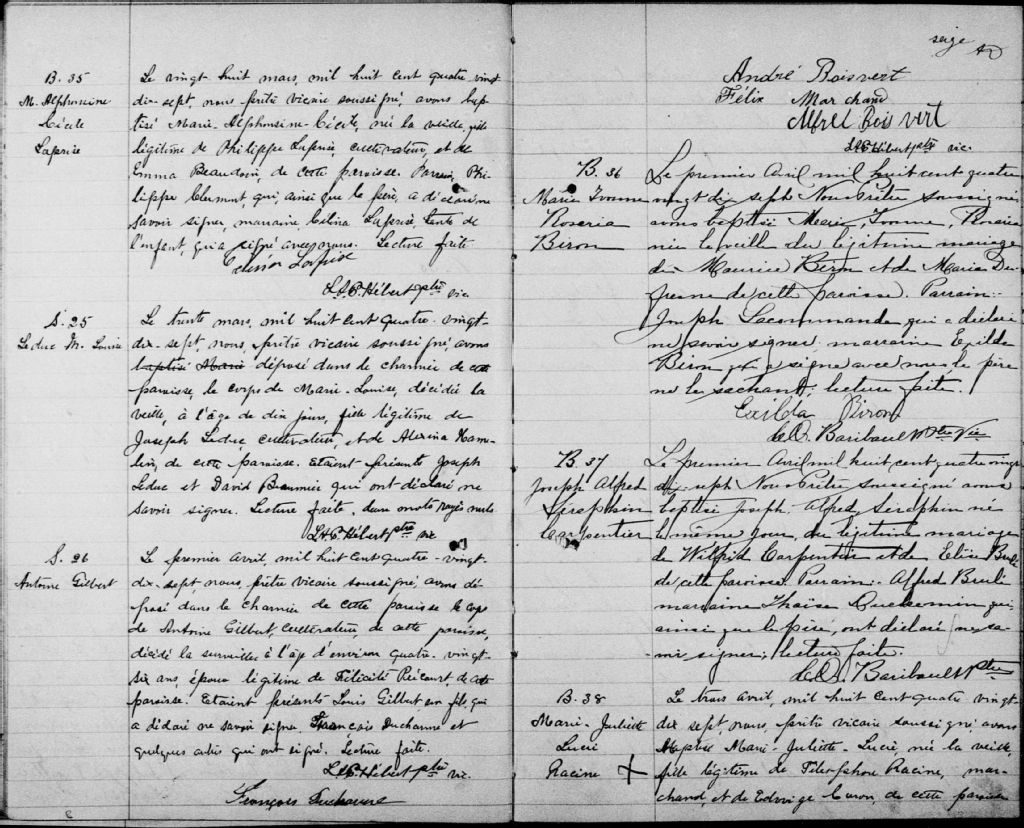 B. 35
M. Alphonsine
Cécile
Laprise
Le vingt huit mars, mil huit cent quatre vingt
dix-sept, nous prêtre vicaire soussigné, avons bap
tisé Marie-Alphonsine-Cécile, née la veille, fille
légitime de Philippe Laprise, cultivateur, et de
Emma Beaudoin, de cette paroisse. Parrain, Phi-
lippe Clermont, qui, ainsi que le père, a déclaré ne
savoir signer, marraine Célina Laprise, tante de
l'enfant, qui a signé avec nous. Lecture faite.
Célina Laprise
L.H.P. Hébert ptre vic.
S. 25
Leduc M. Louise
Le trente mars, mil huit cent quatre-vingt-
dix-sept, nous, prêtre vicaire soussigné, avons
baptisé Marie déposé dans le charnier de cette
paroisse, le corps de Marie-Louise, décédée la
veille, à l'âge de dix jours, fille légitime de
Joseph Leduc, cultivateur, et de Alexina Ham-
lin, de cette paroisse. Etaient présents Joseph
Leduc et David Beaumier qui ont déclaré ne
savoir signer. Lecture faite. deux mots rayés nuls
L.H.P. Hébert ptre vic
S. 26
Antoine Gilbert
Le premier avril, mil huit cent quatre-vingt-
dix-sept, nous, prêtre vicaire soussigné, avons dé
posé dans le charnier de cette paroisse le corps
de Antoine Gilbert, cultivateur, de cette paroisse,
décédé la surveille à l'âge d'environ quatre-vingt-
six ans, époux légitime de Félicité Ricourt, de cette
paroisse. Etaient présents Louis Gilbert son fils, qui
a déclaré ne savoir signer, François Ducharme et
quelques autres qui ont signé. Lecture faite.
L.H.P. Hébert ptre vic.
François Ducharme
seize
André Boisvert
Félix Marchand
Alfred Boisvert
L.H.P. Hébert ptre vic.
B. 36
Marie Ivonne
Rosaria
Biron
Le premier Avril mil huit cent quatre
vingt dix sept Nous Prêtre soussigné
avons baptisé Marie, Ivonne, Rosaria
née la veille du légitime mariage
de Maurice Biron et de Maria Du
fresne de cette paroisse. Parrain:
Joseph Lacommande qui a déclaré
ne savoir signer, marraine Exilda
Biron qui a signé avec nous le père
ne le sachant; lecture faite.
Exilda Biron
C.O. Baribault Ptre Vic
B. 37
Joseph Alfred
Séraphin
Carpentier
Le premier Avril mil huit cent quatre vingt
dix-sept Nous Prêtre soussigné avons
baptisé Joseph-Alfred Séraphin né
le même jour, du légitime mariage
de Wilfrid Carpentier et de Eliza Brulé
de cette paroisse. Parrain: Alfred Brulé
marraine Thaïse Duchemin qui,
ainsi que le père, ont déclaré ne sa-
voir signer; lecture faite.
C.O. Baribault Ptre
B. 38
Marie-Juliette
Lucie
Racine
Le trois avril, mil huit cent quatre vingt-
dix sept, nous, prêtre vicaire soussigné, avons
baptisé Marie-Juliette-Lucie, née la veille,
fille légitime de Télesphore Racine, mar-
chand, et de Edwige Caron, de cette paroisse